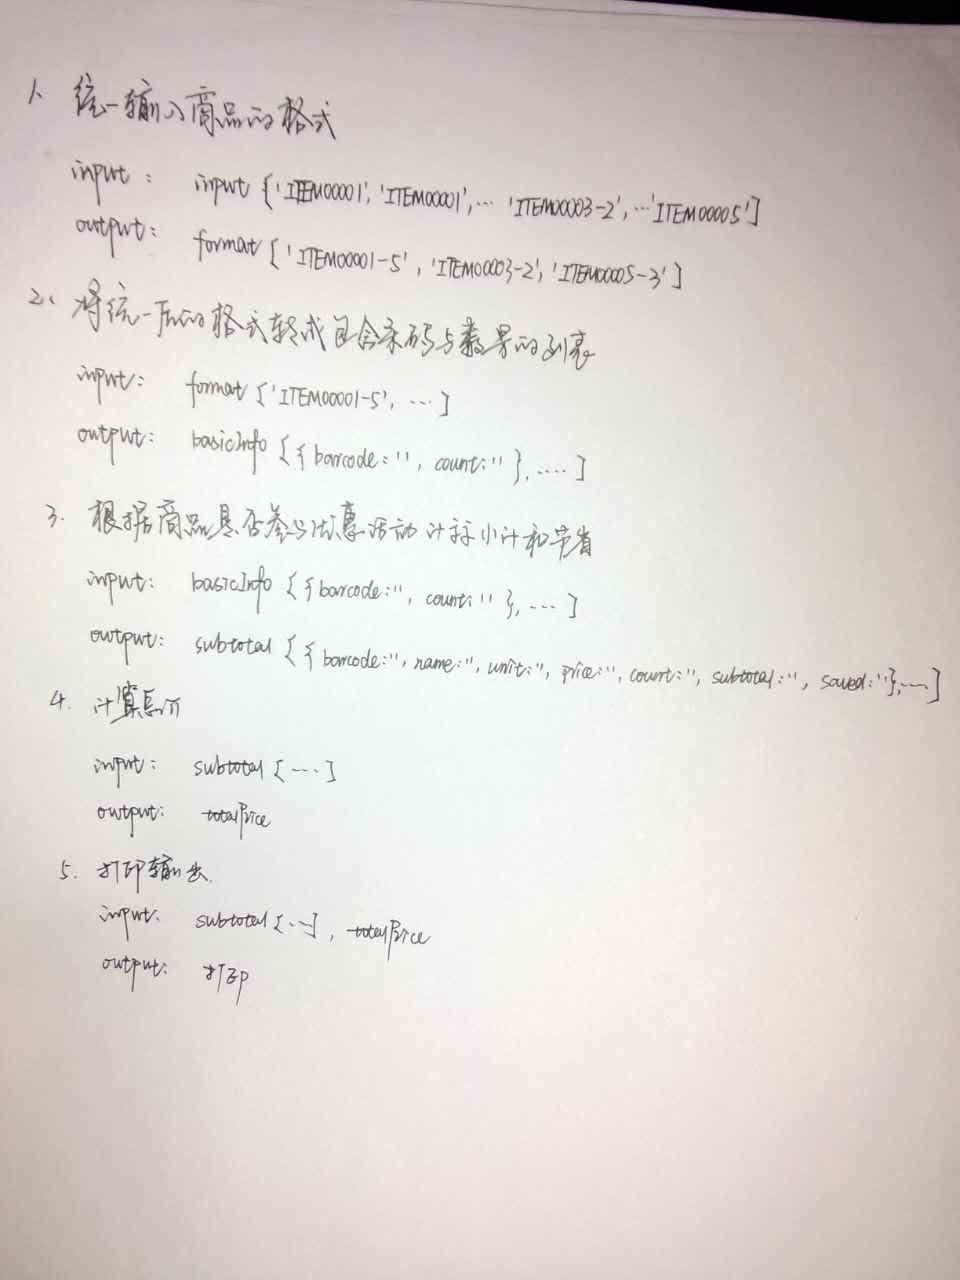 1、统一输入商品的格式
input： input ['ITEM00001', 'ITEM00001', … 'ITEM00003-2', …'ITEM00005']
output： format ['ITEM00001-5', 'ITEM00003-2', 'ITEM00005-3']
2、将统一后的格式转成包含条码与数量的列表
input： format ['ITEM00001-5', …]
output： basicInfo [{barcode:'', count:''}, ....]
3. 根据商品是否参与优惠活动计算小计和节省
input： basicInfo [{barcode:'', count:''}, ...]
output： subtotal [{barcode:'', name:'', unit:'', price:'', count:'', subtotal:'', saved:''}, ...]
4. 计算总价
input： subtotal [....]
output： totalPrice
5. 打印输出.
input： subtotal [...], totalPrice
output： 打印